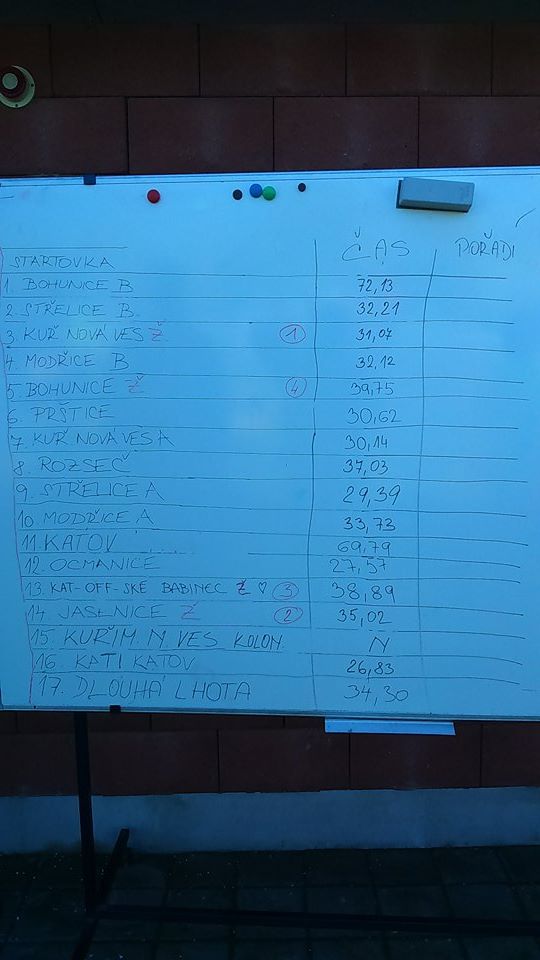 STARTOVKA ČAS POŘADÍ
1. BOHUNICE B 72,13
2. STŘELICE B 32,21
3. KUŘ NOVÁ VES Ž 1 31,07
4. MODŘICE B 32,12
5. BOHUNICE Ž 4 39,75
6. PRŠTICE 30,62
7. KUŘ NOVÁ VES A 30,14
8. ROZSEČ 37,03
9. STŘELICE A 29,39
10. MODŘICE A 33,73
11. KATOV 69,79
12. OCMANICE 27,57
13. KAT-OFF-SKÉ BABINEC Ž ♡ 3 38,89
14. JASENICE Ž 2 35,02
15. KUŘIM. N. VES KOLON. N
16. KATI KATOV 26,83
17. DLOUHÁ LHOTA 34,30